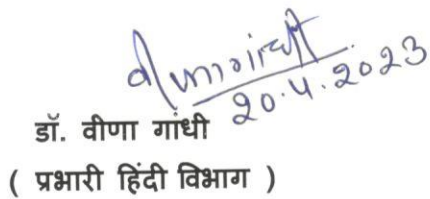 वीणा गांधी
20.4.2023
डॉ. वीणा गांधी
( प्रभारी हिंदी विभाग )